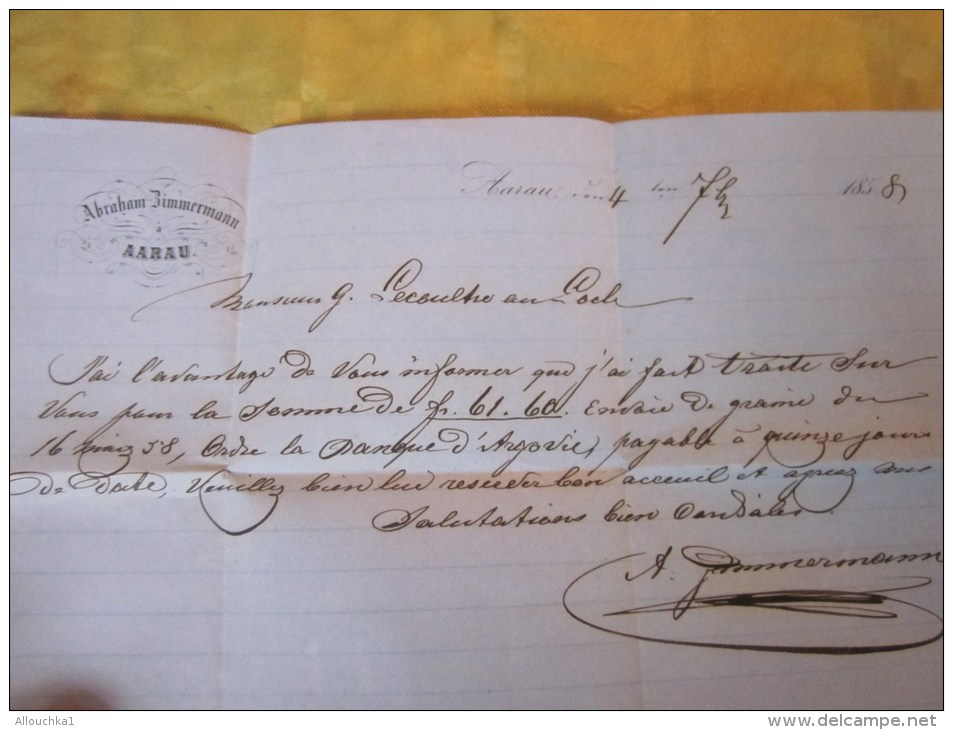 Abraham Zimmermann
à
AARAU.
Aarau, den 4 ten 7b 1858
Monsieur G. Lecoultre au Locle
J'ai l'avantage de Vous informer que j'ai fait traite sur
Vous pour la somme de fr. 61.60. Envoie de graine du
16 mars 58, Ordre la Banque d'Argovie, payable à quinze jours
De Date, Veuillez bien lui reserver bon acceuil et agreez mes
Salutations bien Cordiales
A. Zimmermann
Allouchka1
http://www.delcampe.net